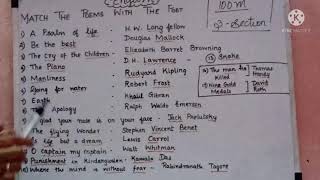 English
MATCH THE POEMS WITH THE POET
100M
8-Section
1) A Psalm of life - H.W. Long fellow
2) Be the best - Douglas Mallock
3) The Cry of the Children - Elizabeth Barret Browning
4) The Piano - D.H. Lawrence - 18 Snake
5) Manliness - Rudyard Kipling
6) Going for water - Robert Frost
7) Earth - Khalil Gibran
Apology - Ralph Waldo Emerson
glad your nose is on your face - Jack Prelutsky
The flying Wonder - Stephen Vincent Benet
Life but a dream - Lewis Carrol
O captain my captain - Walt Whitman
Punishment in Kindergarden - Kamala Das
Where the mind is without fear - Rabindranath Tagore
The man he Killed - Thomas Hardy
Nine Gold Medals - David Roth